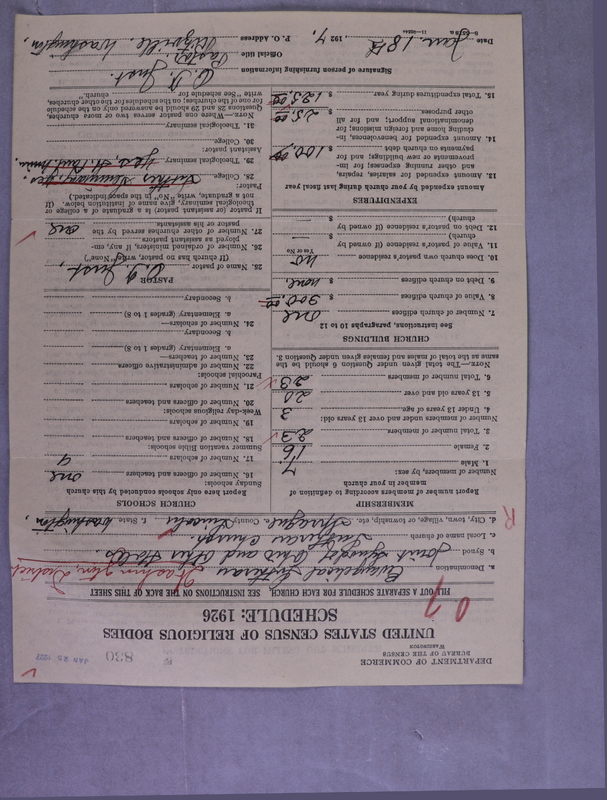 DEPARTMENT OF COMMERCE
BUREAU OF THE CENSUS
WASHINGTON
830
JAN 25 1927
UNITED STATES CENSUS OF RELIGIOUS BODIES
SCHEDULE: 1926
FILL OUT A SEPARATE SCHEDULE FOR EACH CHURCH SEE INSTRUCTIONS ON THE BACK OF THIS SHEET
a. Denomination Evangelical Lutheran Washington District
b. Synod Joint Synod of Ohio and other States
c. Local name of church Lutheran Church
d. City, town, village, or township, etc. Sprague e. County Lincoln f. State Washington
MEMBERSHIP
Report number of members according to definition of member in your church
Number of members, by sex:
1. Male 7
2. Female 16
3. Total number of members 23
Number of members under and over 13 years old:
4. Under 13 years of age 3
5. 13 years old and over 20
6. Total number of members 23
NOTE.—The total given under Question 6 should be the same as the total of males and females given under Question 3.
CHURCH BUILDINGS
See instructions, paragraphs 10 to 12
7. Number of church edifices one
8. Value of church edifices $ 900.00
9. Debt on church edifices $ none
10. Does church own pastor's residence no
Yes or No
11. Value of pastor's residence (if owned by church) $
12. Debt on pastor's residence (if owned by church) $
EXPENDITURES
Amount expended by your church during last fiscal year
13. Amount expended for salaries, repairs, and other running expenses; for improvements or new buildings; and for payments on church debt $ 100.00
14. Amount expended for benevolences, including home and foreign missions; for denominational support; and for all other purposes $ 25.00
15. Total expenditures during year $ 125.00
CHURCH SCHOOLS
Report here only schools conducted by this church
Sunday schools:
16. Number of officers and teachers one
17. Number of scholars 9
Summer vacation Bible schools:
18. Number of officers and teachers
19. Number of scholars
Week-day religious schools:
20. Number of officers and teachers
21. Number of scholars
Parochial schools:
22. Number of administrative officers
23. Number of teachers—
a. Elementary (grades 1 to 8)
b. Secondary
24. Number of scholars—
a. Elementary (grades 1 to 8)
b. Secondary
PASTOR
25. Name of pastor
(If church has no pastor, write "None")
26. Number of ordained ministers, if any, employed as assistant pastors
27. Number of churches served by the pastor or his assistants one
If pastor (or assistant pastor) is a graduate of a college or theological seminary, give name of institution below. (If not a graduate, write "No" in the space indicated.)
Pastor:
28. College Luther Seminary, yes
29. Theological seminary yes St. Paul Minn.
Assistant pastor:
30. College
31. Theological seminary
NOTE.—Where one pastor serves two or more churches, Questions 28 and 29 should be answered only on the schedule for one of the churches; on the schedules for the other churches, write "See schedule for church."
Signature of person furnishing information
Official title Pastor
P. O. Address Ritzville, Washington,
Date Jan 18th, 1927